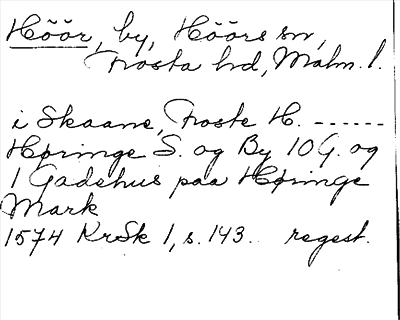 Höör, by, Höörs sn,
Frosta hd, Malm. l.
i Skaane, Froste H. ------
Høringe S. og By 10 G. og
1 Gadehus paa Høringe
Mark
1574 KrSk 1, s. 143. regest.